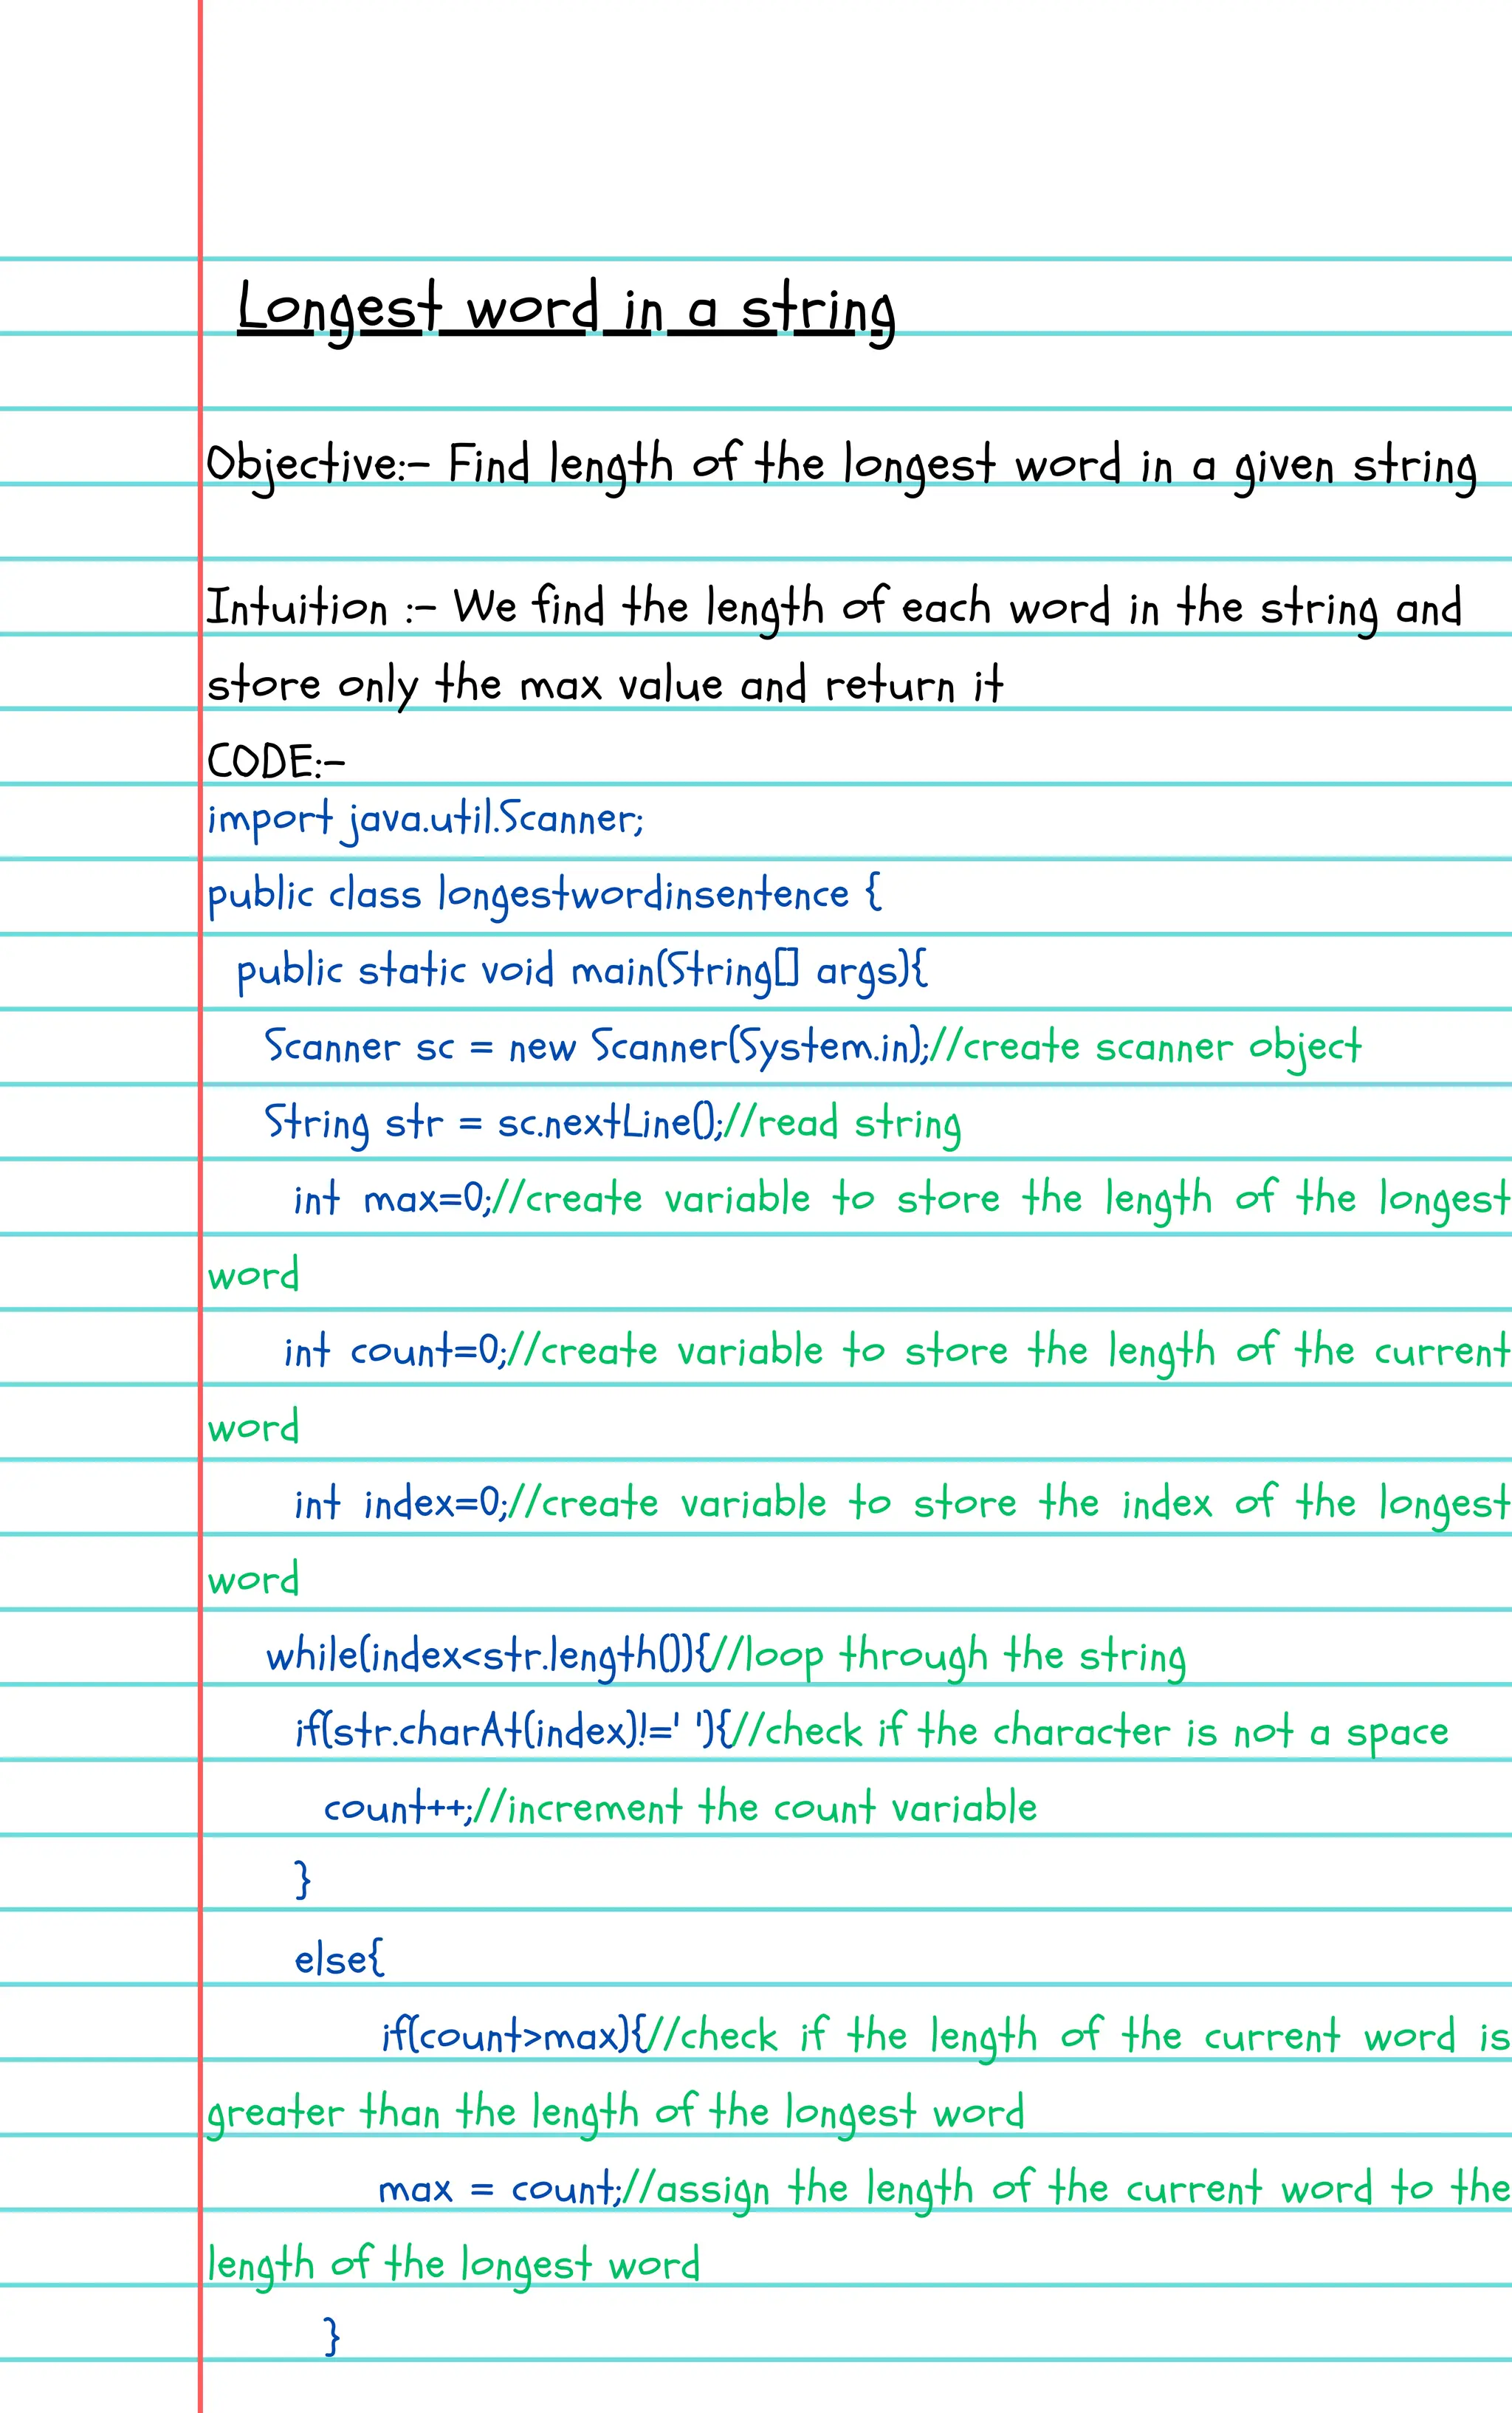 Longest word in a string
Objective:- Find length of the longest word in a given string
Intuition :- We find the length of each word in the string and
store only the max value and return it
CODE:-
import java.util.Scanner;
public class longestwordinsentence {
public static void main(String[] args){
Scanner sc = new Scanner(System.in);//create scanner object
String str = sc.nextLine();//read string
int max=0;//create variable to store the length of the longest
word
int count=0;//create variable to store the length of the current
word
int index=0;//create variable to store the index of the longest
word
while(index<str.length()){//loop through the string
if(str.charAt(index)!=' '){//check if the character is not a space
count++;//increment the count variable
}
else{
if(count>max){//check if the length of the current word is
greater than the length of the longest word
max = count;//assign the length of the current word to the
length of the longest word
}